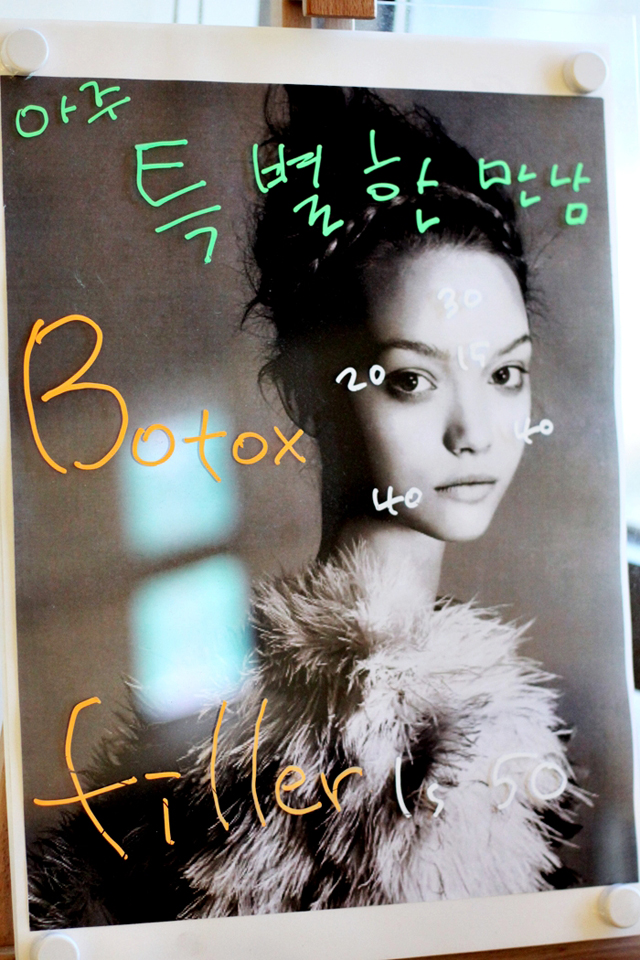 아주
특별한 만남
30
15
20
Botox
40
40
filler is 50